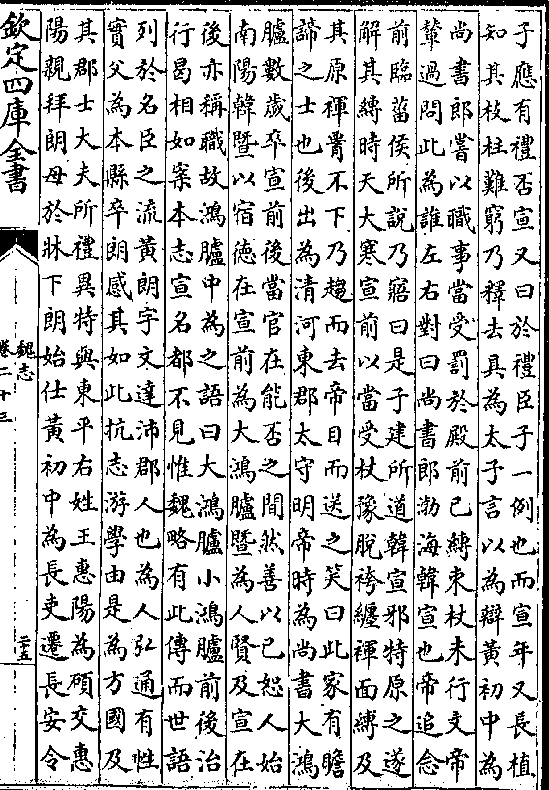 子應有禮否宣又曰於禮臣子一例也而宣年又長植
知其枝柱難窮乃釋去具為太子言以為辯黄初中為
尚書郎嘗以職事當受罰於殿前已縛束杖未行文帝
輦過問此為誰左右對曰尚書郎渤海韓宣也帝追念
前臨菑侯所說乃寤曰是子建所道韓宣邪特原之遂
解其縛時天大寒宣前以當受杖豫脱袴纏褌面縛及
其原褌䙅不下乃趨而去帝目而送之笑曰此家有瞻
諦之士也後出為清河東郡太守明帝時為尚書大鴻
臚數歲卒宣前後當官在能否之間然善以己恕人始
南陽韓暨以宿德在宣前為大鴻臚暨為人賢及宣在
後亦稱職故鴻臚中為之語曰大鴻臚小鴻臚前後治
行曷相如案本志宣名都不見惟魏略有此傳而世語
列於名臣之流黄朗字文達沛郡人也為人弘通有性
實父為本縣卒朗感其如此抗志游學由是為方國及
其郡士大夫所禮異特與東平右姓王惠陽為碩交惠
陽親拜朗母於牀下朗始仕黄初中為長吏遷長安令
欽定四庫全書
魏志
卷二十三
二十五